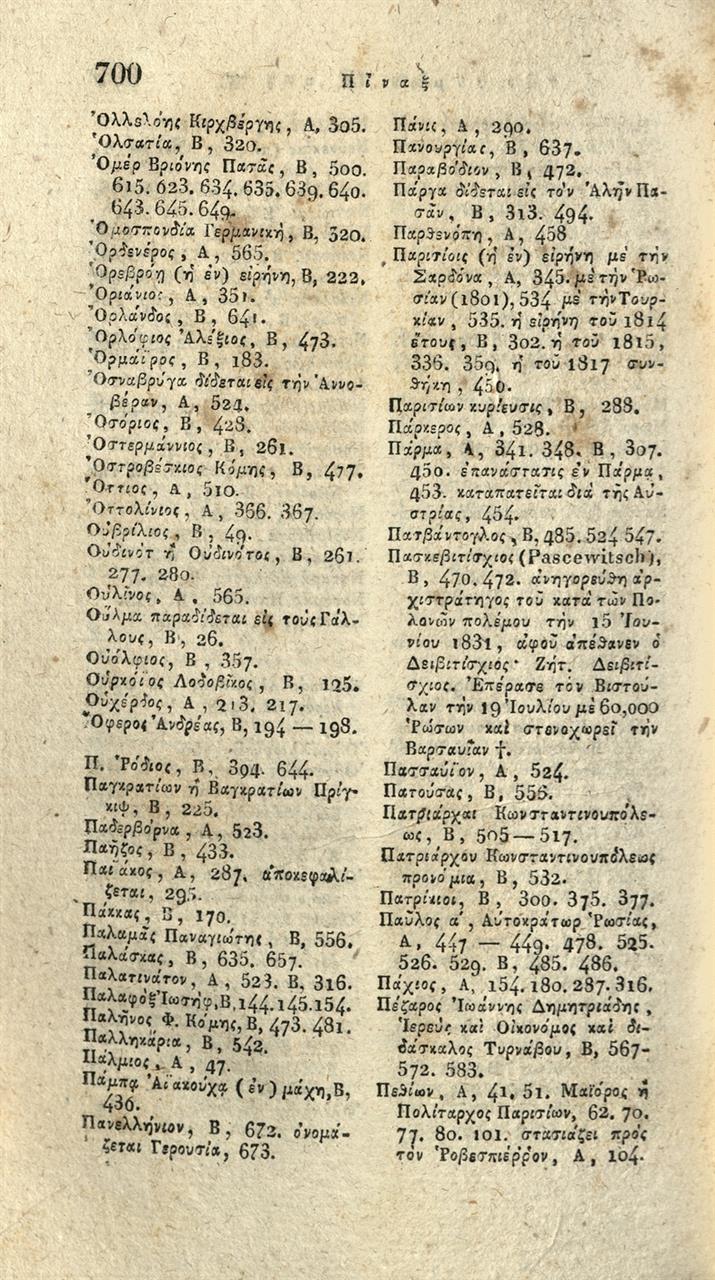 700
Πίναξ
Ὀλλȣλόης Κιρχβέργης, Α, 305.
Ὀλσατία, Β, 320.
Ὀμέρ Βριόνης Πατᾶς, Β, 500.
615. 623. 634. 635. 639. 640.
643. 645. 649.
Ὁμοσπονδία Γερμανική, Β, 320.
Ὀρδενέρος, Α, 565.
Ὀρεβρόῃ (ἡ ἐν) εἰρήνη, Β, 222.
Ὀριάνιος, Α, 351.
Ὀρλάνδος, Β, 641.
Ὀρλόφιος Ἀλέξιος, Β, 473.
Ὀρμαῖρος, Β, 183.
Ὀσναβρύγα δίδεται εἰς τὴν Ἀννο-
βέραν, Α, 524.
Ὀσόριος, Β, 428.
Ὀστερμάννιος, Β, 261.
Ὀστροβέσκιος Κόμης, Β, 477.
Ὄττιος, Α, 510.
Ὀττολίνιος, Α, 366. 367.
Οὐβρίλιος, Β, 49.
Οὐδινότ ἢ Οὐδινότος, Β, 261.
277. 280.
Οὐλῖνος, Α, 565.
Οὖλμα παραδίδεται εἰς τοὺς Γάλ-
λους, Β, 26.
Οὐόλφιος, Β, 357.
Οὐρκόϊος Λοδοβῖκος, Β, 125.
Οὐχέρδος, Α, 213. 217.
Ὄφερος Ἀνδρέας, Β, 194 — 198.
Π. Ῥόδιος, Β, 394. 644.
Παγκρατίων ἢ Βαγκρατίων Πρίγ-
κιψ, Β, 225.
Παδερβόρνα, Α, 523.
Παῆζος, Β, 433.
Παϊάκος, Α, 287. ἀποκεφαλί-
ζεται, 295.
Πάκκας, Β, 170.
Παλαμᾶς Παναγιώτης, Β, 556.
Παλάσκας, Β, 635. 657.
Παλατινάτον, Α, 523. Β, 316.
Παλαφόξ Ἰωσήφ, Β, 144. 145. 154.
Παλῆνος Φ. Κόμης, Β, 473. 481.
Παλληκάρια, Β, 542.
Πάλμιος, Α, 47.
Πάμπᾳ Ἀϊακούχᾳ (ἐν) μάχη, Β,
436.
Πανελλήνιον, Β, 672. ὀνομά-
ζεται Γερουσία, 673.
Πάνις, Α, 290.
Πανουργίας, Β, 637.
Παραβόδιον, Β, 472.
Πάργα δίδεται εἰς τὸν Ἀλῆν Πα-
σᾶν, Β, 313. 494.
Παρθενόπη, Α, 458
Παρισίοις (ἡ ἐν) εἰρήνη μὲ τὴν
Σαρδόνα, Α, 345. μὲ τὴν Ῥω-
σίαν (1801), 534 μὲ τὴν Τουρ-
κίαν, 535. ἡ εἰρήνη τοῦ 1814
ἔτους, Β, 302. ἡ τοῦ 1815,
336. 359. ἡ τοῦ 1817 συν-
θήκη, 450.
Παρισίων κυρίευσις, Β, 288.
Πάρκερος, Α, 528.
Πάρμα, Α, 341. 348. Β, 307.
450. ἐπανάστασις ἐν Πάρμᾳ,
453. καταπατεῖται διὰ τῆς Αὐ-
στρίας, 454.
Πασβάντογλος, Β, 485. 524 547.
Πασκεβιτίσχιος (Pascewitsch),
Β, 470. 472. ἀνηγορεύθη ἀρ-
χιστράτηγος τοῦ κατὰ τῶν Πο-
λονῶν πολέμου τὴν 15 Ἰου-
νίου 1831, ἀφοῦ ἀπέθανεν ὁ
Δειβιτίσχιος· Ζήτ. Δειβιτί-
σχιος. Ἐπέρασε τὸν Βιστού-
λαν τὴν 19 Ἰουλίου μὲ 60,000
Ῥώσων καὶ στενοχωρεῖ τὴν
Βαρσαυΐαν †.
Πασσαύϊον, Α, 524.
Πατούσας, Β, 556.
Πατριάρχαι Κωνσταντινουπόλε-
ως, Β, 505 — 517.
Πατριάρχου Κωνσταντινουπόλεως
προνόμια, Β, 532.
Πατρίκιοι, Β, 300. 375. 377.
Παῦλος α΄, Αὐτοκράτωρ Ῥωσίας,
Α, 447 — 449. 478. 525.
526. 529. Β, 485. 486.
Πάχιος, Α, 154. 180. 287. 316.
Πέζαρος Ἰωάννης Δημητριάδης,
Ἱερεὺς καὶ Οἰκονόμος καὶ δι-
δάσκαλος Τυρνάβου, Β, 567-
572. 583.
Πεθίων, Α, 41. 51. Μαῖόρος ἢ
Πολίταρχος Παρισίων, 62. 70.
77. 80. 101. στασιάζει πρὸς
τὸν Ῥοβεσπιέῤῥον, Α, 104.